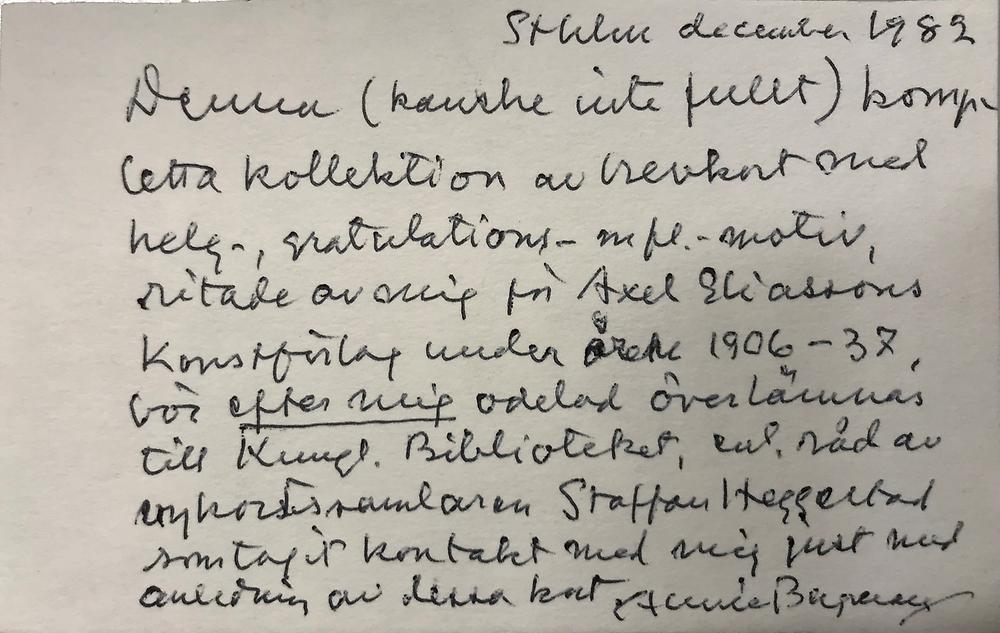 Sthlm december 1982
Denna (kanske inte fullt) komp-
letta kollektion av brevkort med
helg-, gratulations- m fl.-motiv,
ritade av mig för Axel Eliassons
Konstförlag under åren 1906-37,
bör efter mig odelad överlämnas
till Kungl. Biblioteket, enl. råd av
vykortssamlaren Staffan
som tagit kontakt med mig just med
anledning av dessa kort, Annie